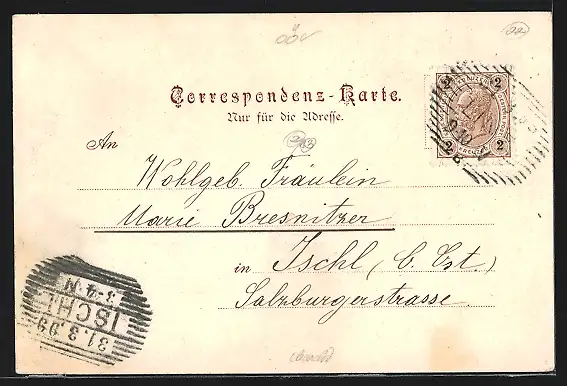 öv
22
Correspondenz-Karte.
Nur für die Adresse.
An
Wohlgeb. Fräulein
Marie Bresnitzer
in Ischl (O. Öst.)
Salzburgerstrasse
2 2
2 2
ISCHL
31.3.99
3-4.N